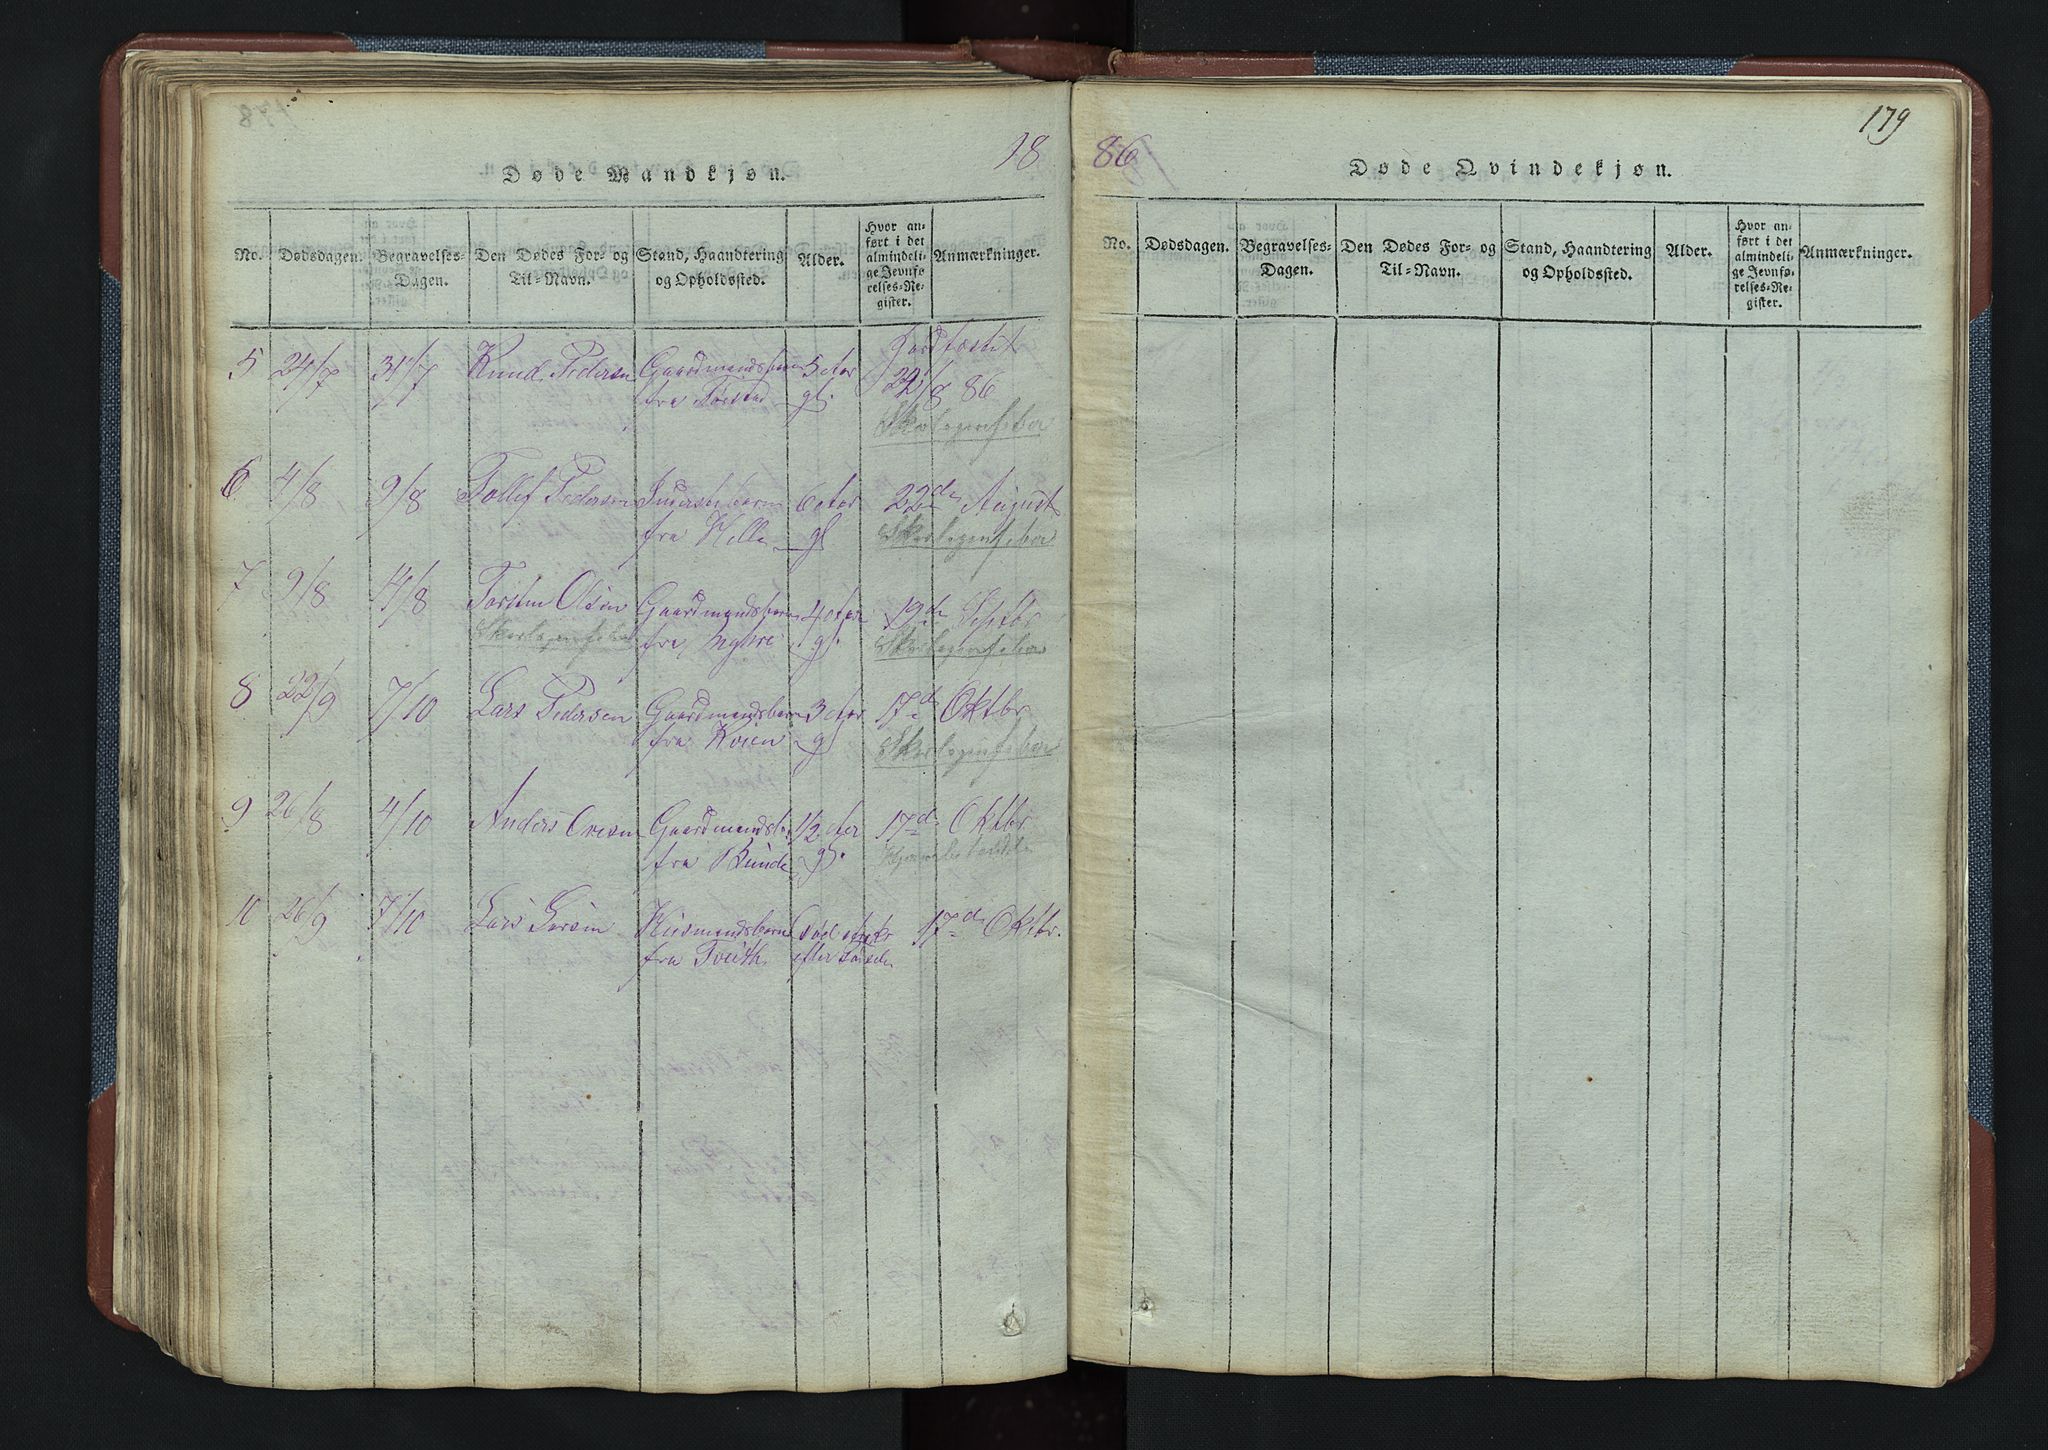 18
Døde Mandkjøn.
No. Dødsdagen. Begravelses-Dagen. Den Dødes For- og Til-Navn. Stand, Haandtering og Opholdssted. Alder. Hvor anført i det almindelige Jevnførelses-Register. Anmærkninger.
Jordfæstet
5 24/7 31/7 Knud Pedersen Gaardmandsbarn 5 Aar
fra gl. 22/8 86
Skarlagensfeber
6 4/8 9/8 Tollef Pedersen Inderstebarn 6 Aar 22de August
fra Helle gl Skarlagensfeber
7 9/8 14/8 Torsten Olsen Gaardmandsbarn 4 Aar 19de Septbr
Skarlagensfeber fra gl. Skarlagensfeber
8 22/9 7/10 Lars Pedersen Gaardmandsbarn 3 Aar 17de Oktbr
fra gl Skarlagensfeber
9 26/8 4/10 Anders Gaardmandsb. 1/2 Aar 17de Oktbr
fra Bunde gl.
10 26/9 7/10 Lars Husmandsbarn død strax 17de Oktbr.
fra Tveith efter
86
179
Døde Qvindekjøn.
No. Dødsdagen. Begravelses-Dagen. Den Dødes For- og Til-Navn. Stand, Haandtering og Opholdssted. Alder. Hvor anført i det almindelige Jevnførelses-Register. Anmærkninger.